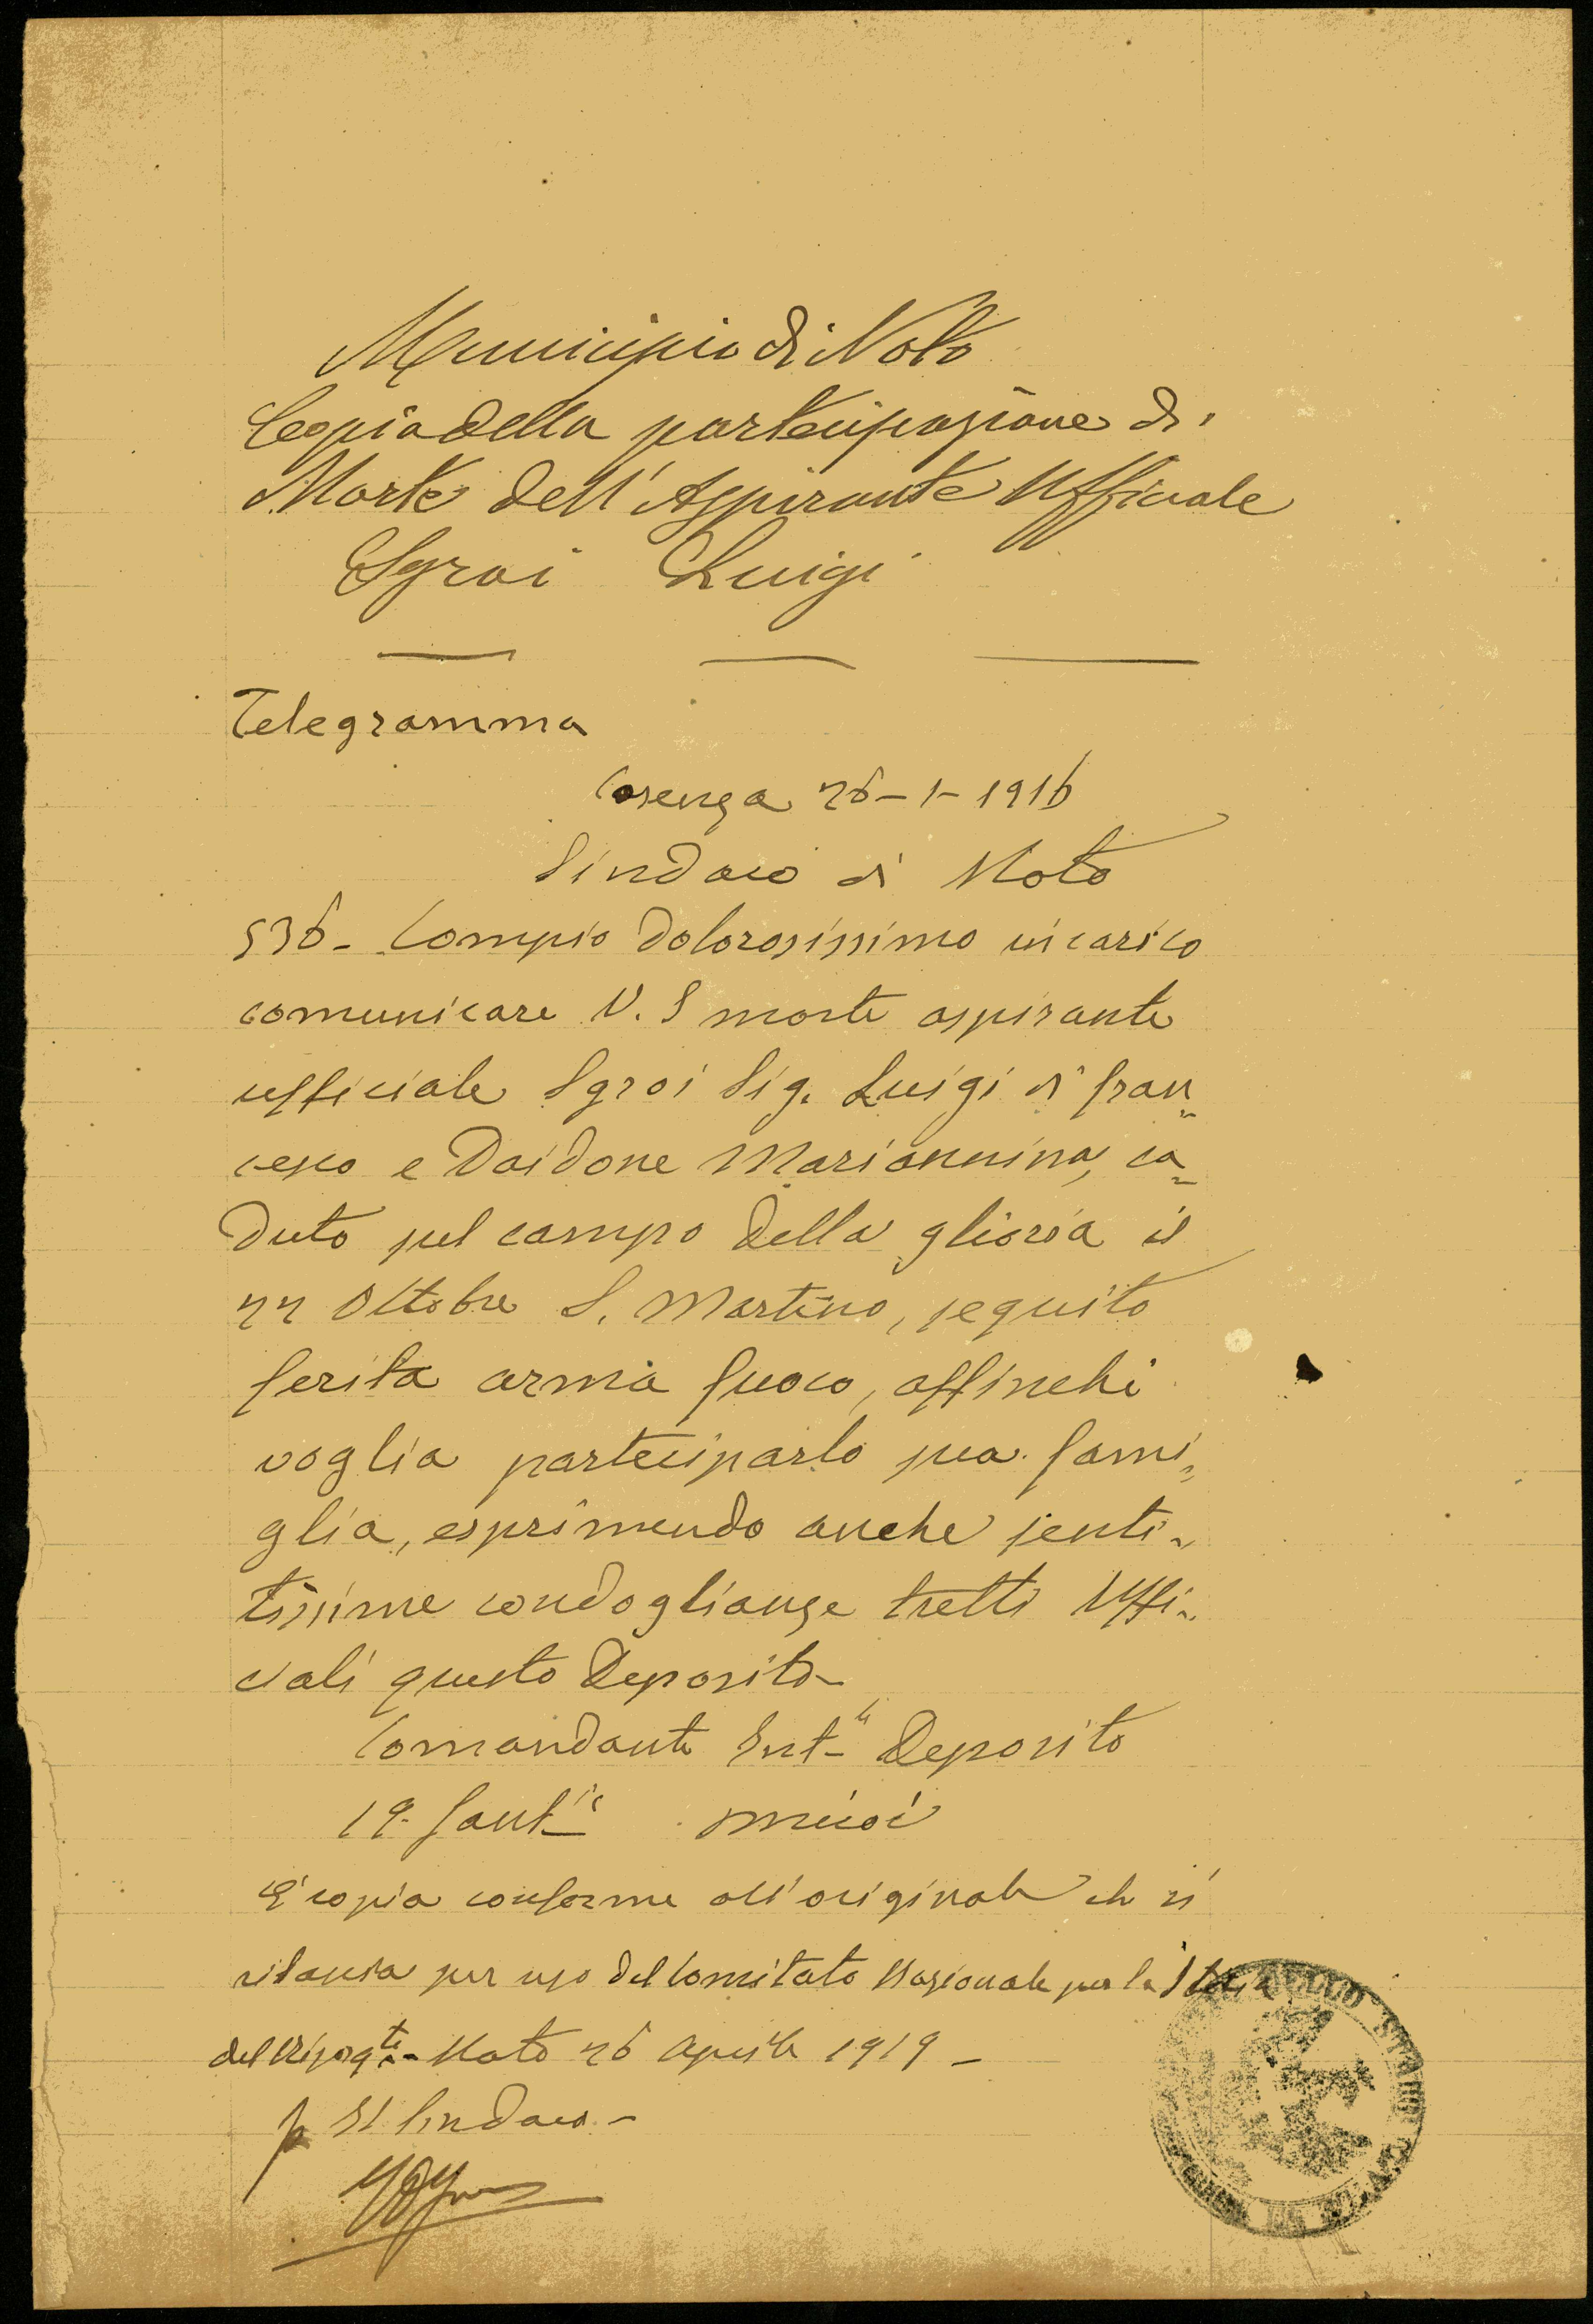 Municipio di Noto
Copia della partecipazione di
Morte dell'Aspirante Ufficiale
Sgroi Luigi
Telegramma
Cosenza 26-1-1916
Sindaco di Noto
536- Compio dolorosissimo incarico
comunicare V. S morte aspirante
ufficiale Sgroi Sig. Luigi di Fran
cesco e Daidone Mariannina, ca
duto sul campo della glioria il
22 Ottobre S. Martino, seguito
ferita arma fuoco, affinchè
voglia parteciparlo sua fami
glia, esprimendo anche senti-
tissime condoglianze tutti Uffi-
ciali questo Deposito-
Comandante Deposito
19- Fant
E' copia conforme all'originale che si
rilascia per uso del Comitato Nazionale per la Storia
del Risorg.to- Noto 26 Aprile 1919-
p Il Sindaco-
STATO CIVILE